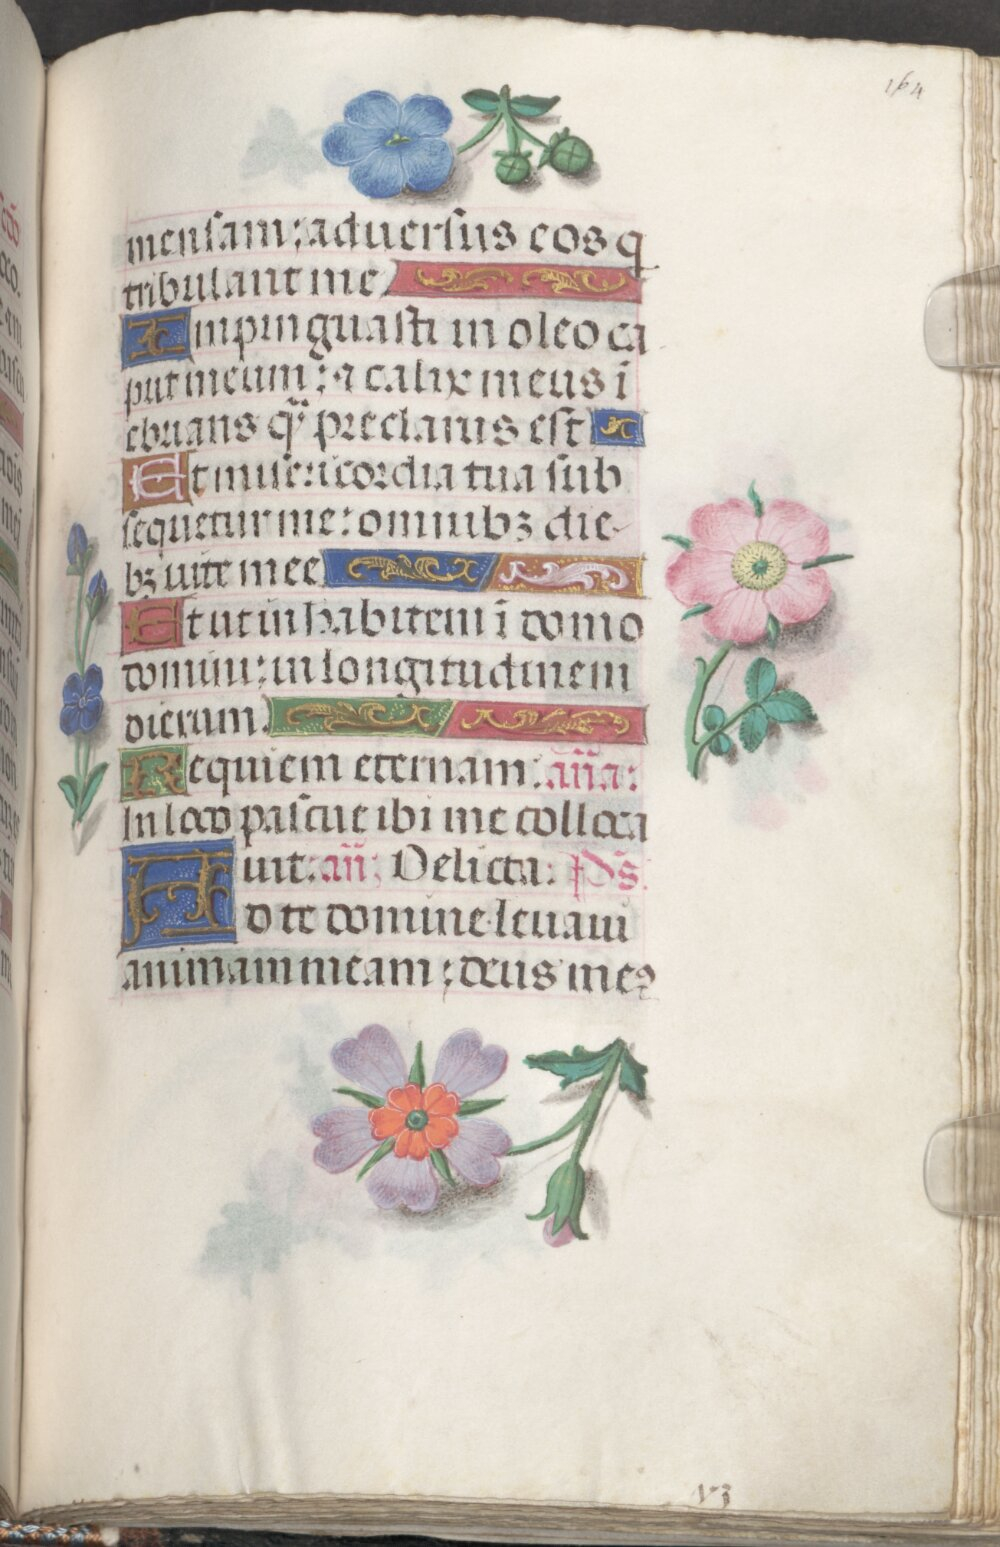 164
mensam: aduersus eos q
tribulant me
Inpinguasti in oleo ca
put meum: ⁊ calix meus ī
ebrians q̄ preclarus est
Et misericordia tua sub
sequetur me: omnibꝫ die
bꝫ uite mee
Et ut inhabitem ī domo
domini: in longitudinem
dierum
Requiem eternam: an̄a:
In loco pascue ibi me colloca
uit: an̄: Delicta: p̄s.
Ad te domine leuaui
animam meam: deus meꝰ